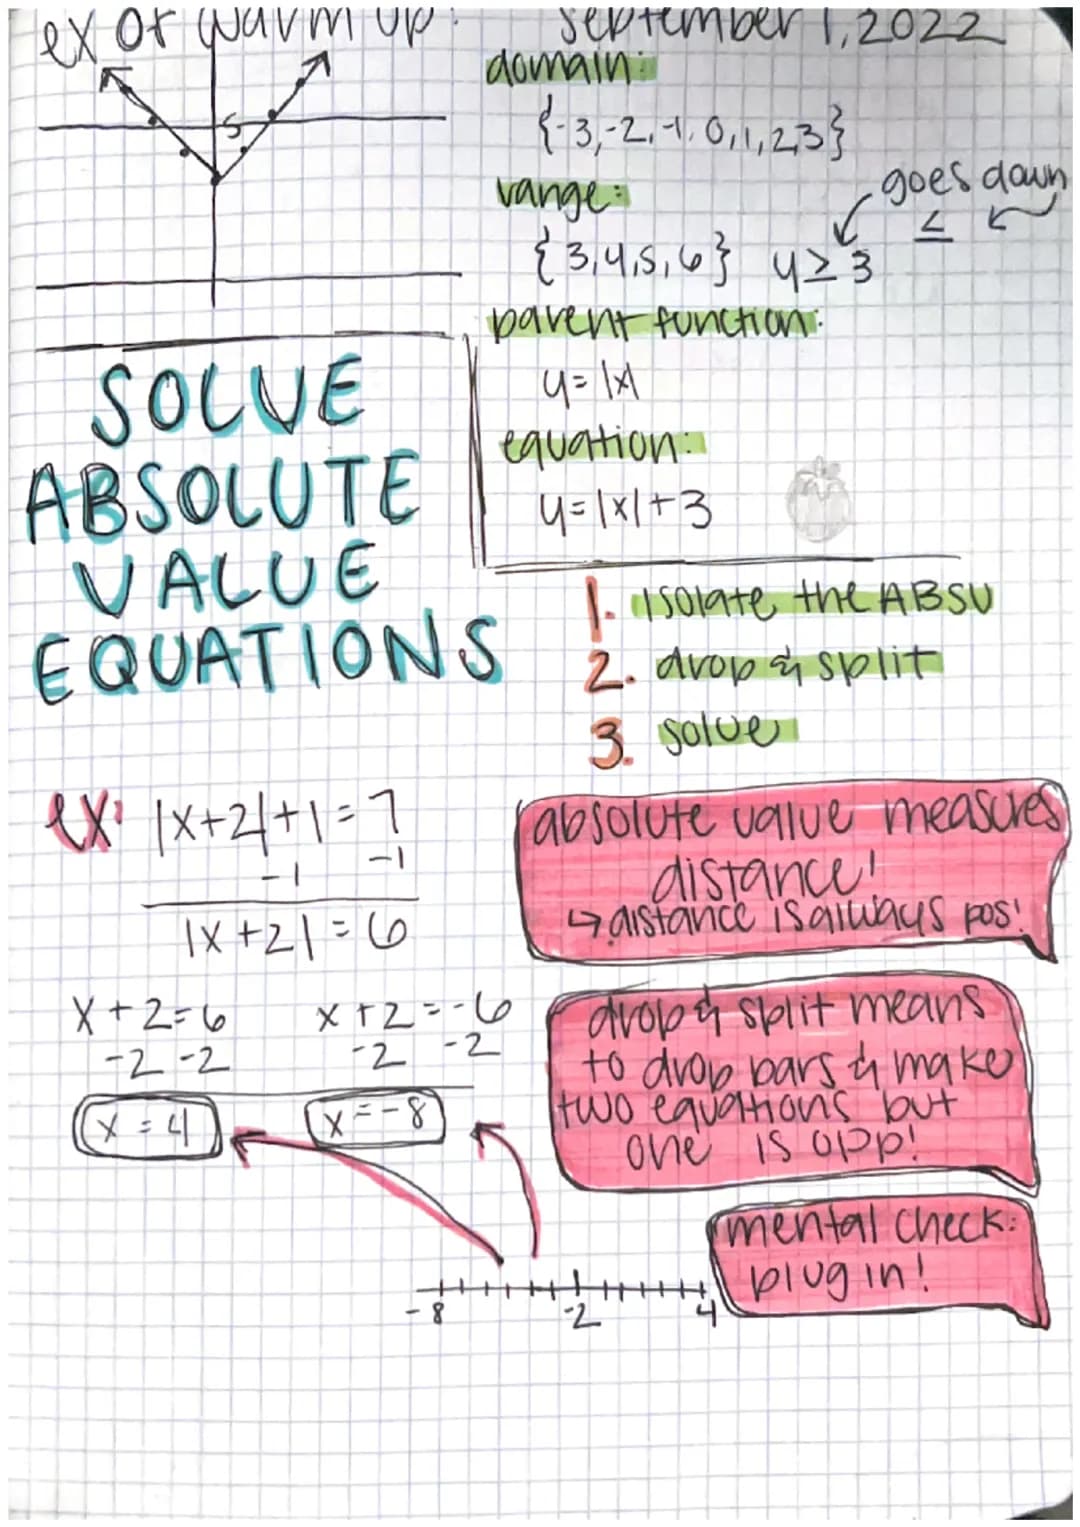 ex of warm up:
September 1, 2022
5
domain:
{-3,-2,-1,0,1,2,3}
range:
{3,4,5,6} y≥3
goes down
≤
parent function:
y=|x|
equation:
y=|x|+3
SOLVE
ABSOLUTE
VALUE
EQUATIONS
1. isolate the ABSV
2. drop & split
3. solve
ex: |x+2|+1=7
-1 -1
|x+2|=6
x+2=6 x+2=-6
-2 -2 -2 -2
x=4 x=-8
absolute value measures
distance!
↳ distance is always pos!
drop & split means
to drop bars & make
two equations but
one is opp!
mental check:
plug in!
-8 -2 4